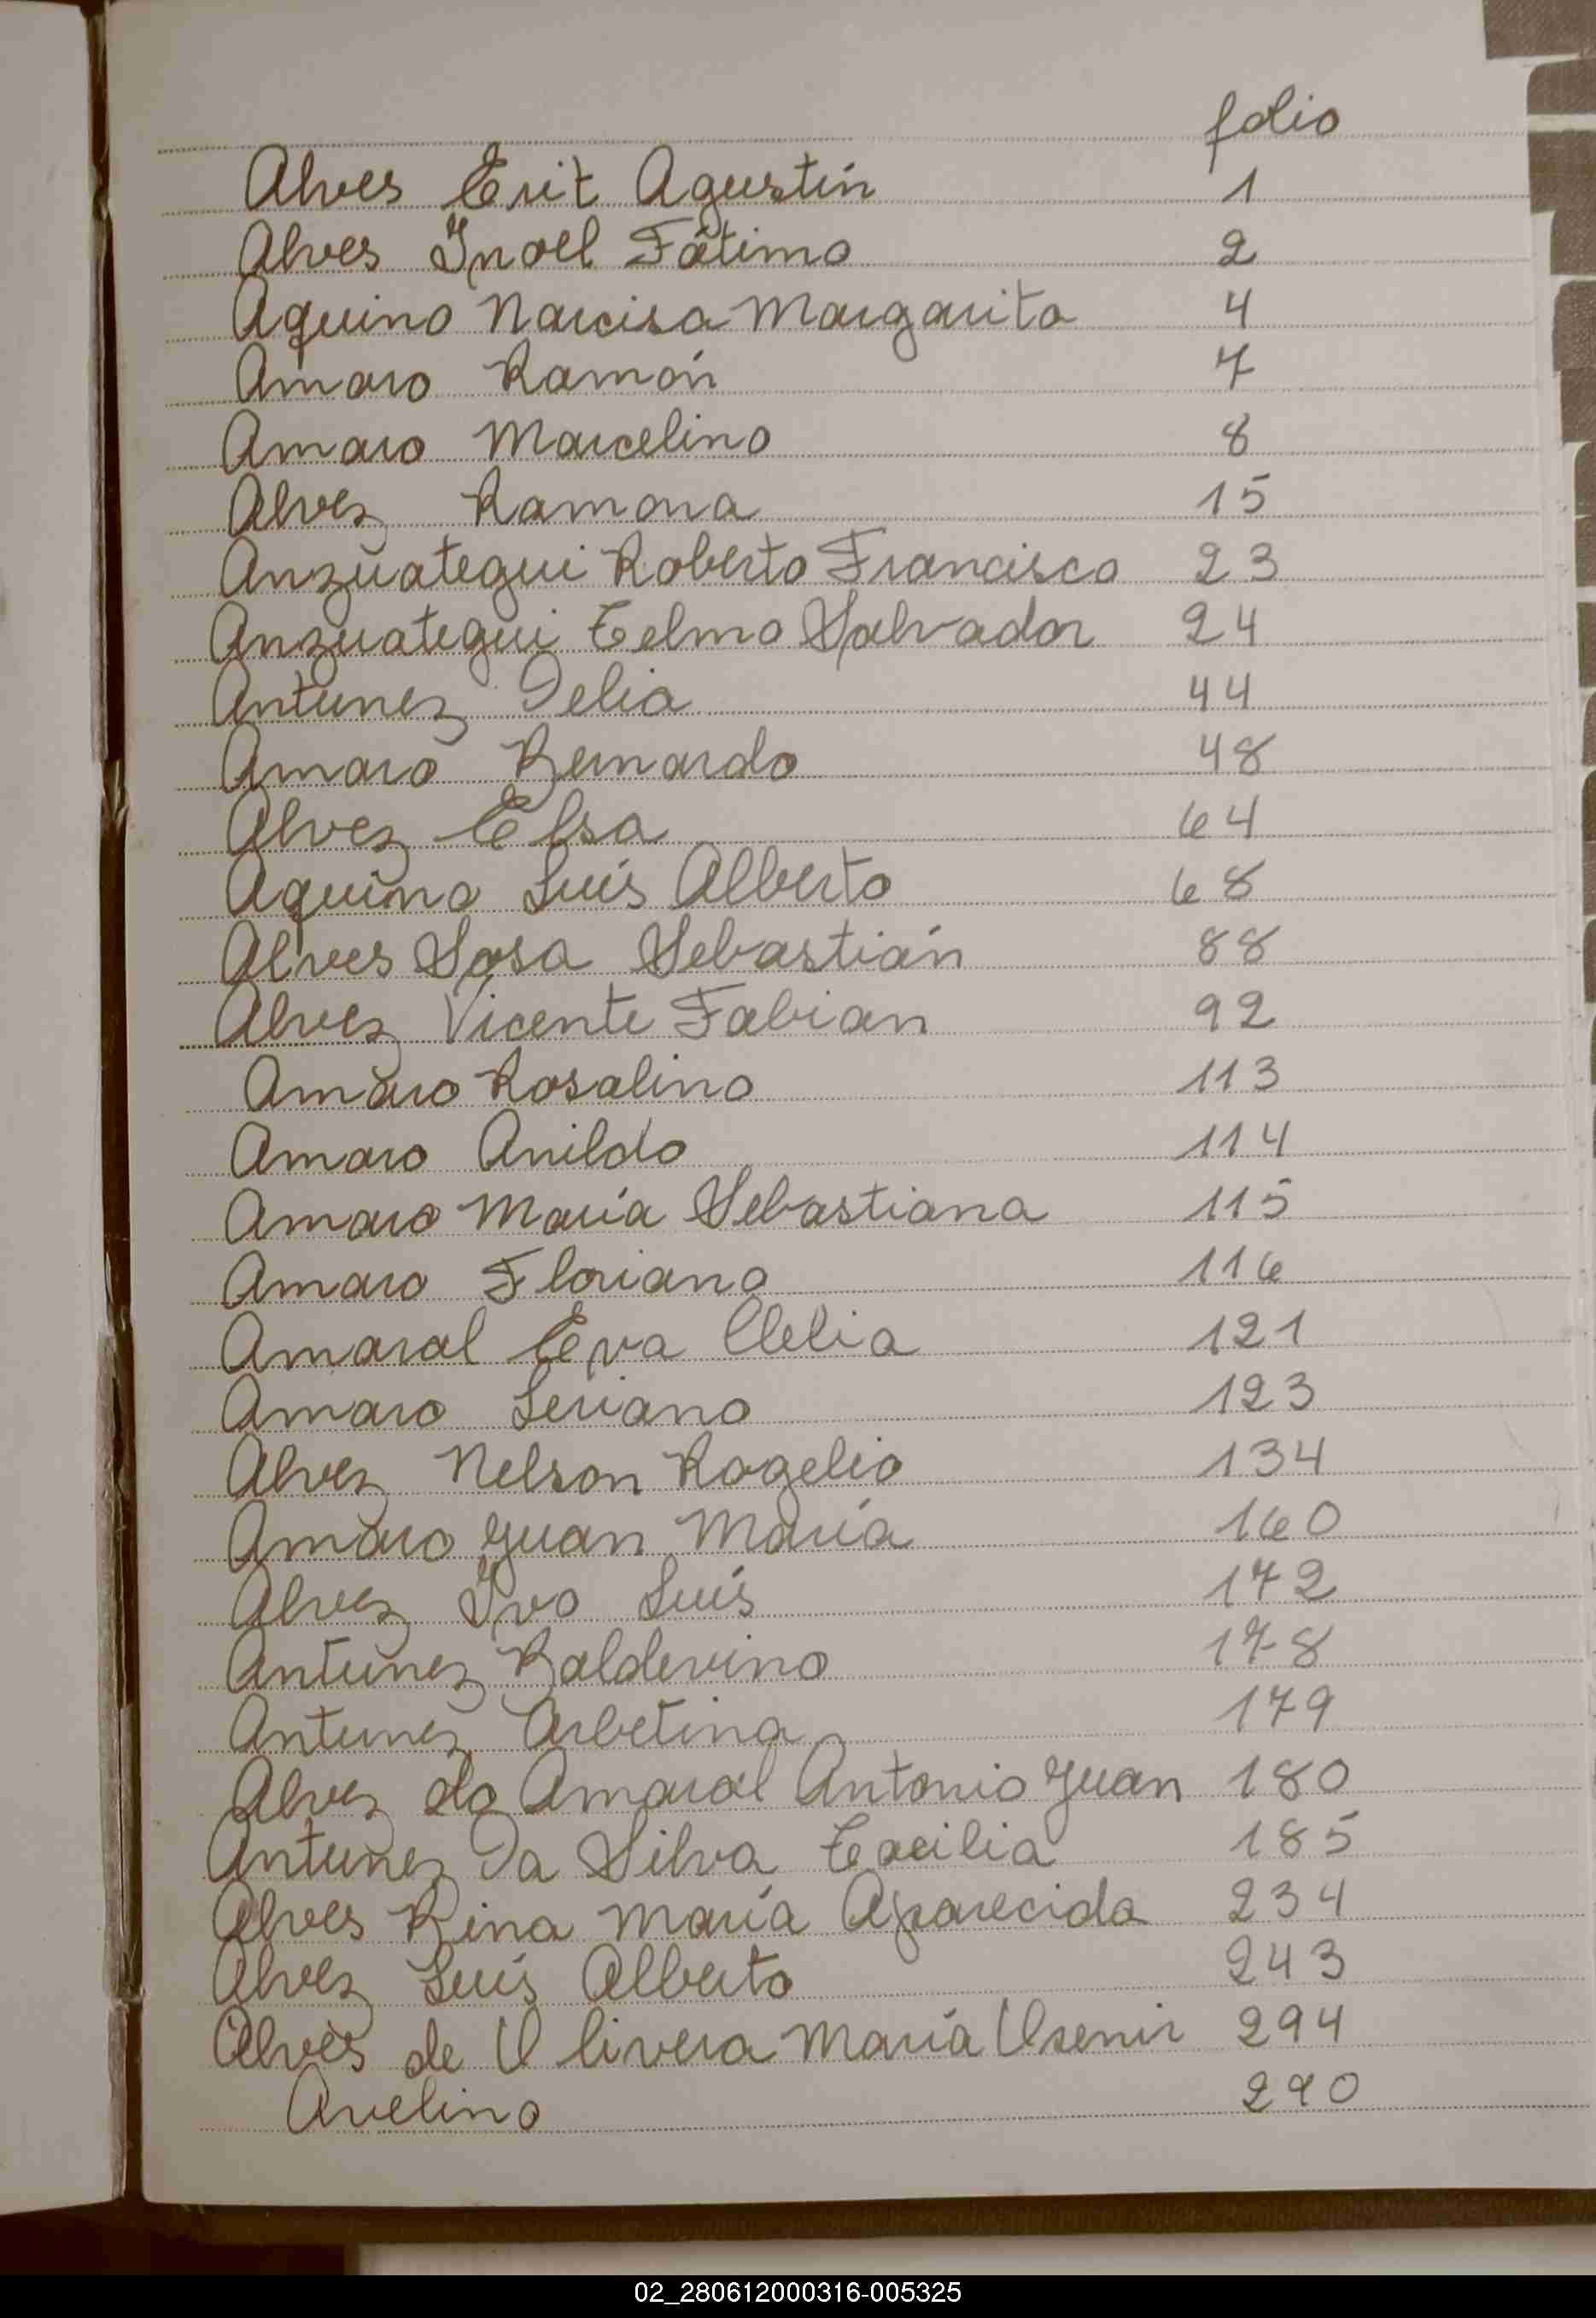 folio
Alves Erit Agustín 1
Alves Inoel Fátima 2
Aquino Narcisa Margarita 4
Amaro Ramón 7
Amaro Marcelino 8
Alvez Ramona 15
Anzuategui Roberto Francisco 23
Anzuategui Telmo Salvador 24
Antunez Delia 44
Amaro Bernardo 48
Alvez Elsa 64
Aquino Luís Alberto 68
Alves Sosa Sebastián 88
Alvez Vicente Fabian 92
Amaro Rosalino 113
Amaro Anildo 114
Amaro María Sebastiana 115
Amaro Floriano 116
Amaral Eva Clelia 121
Amaro Seriano 123
Alvez Nelson Rogelio 134
Amaro Juan María 160
Alvez Ivo Luís 172
Antunez Balderino 178
Antunez Arbetina 179
Alvez do Amaral Antonio Juan 180
Antunez Da Silva 185
Alves Rina María Aparecida 234
Alvez Luís Alberto 243
Alves de Olivera María 294
Avelino 290
02_280612000316-005325